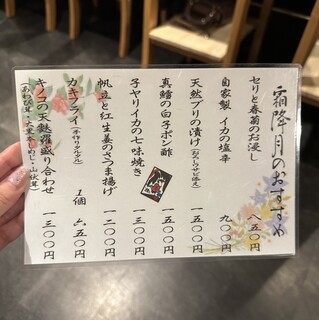 霜降月のおすすめ
セリと春菊のお浸し 八五〇円
自家製 イカの塩辛 九〇〇円
天然ブリの漬け 一五〇〇円
真鱈の白子ポン酢 一五〇〇円
子ヤリイカの七味焼き 一三〇〇円
帆立と紅生姜のさつま揚げ 一二〇〇円
カキフライ（手作りタルタル） 1個 六五〇円
キノコの天麩羅盛り合わせ 一三〇〇円